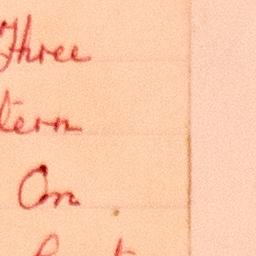 Three
tern
On